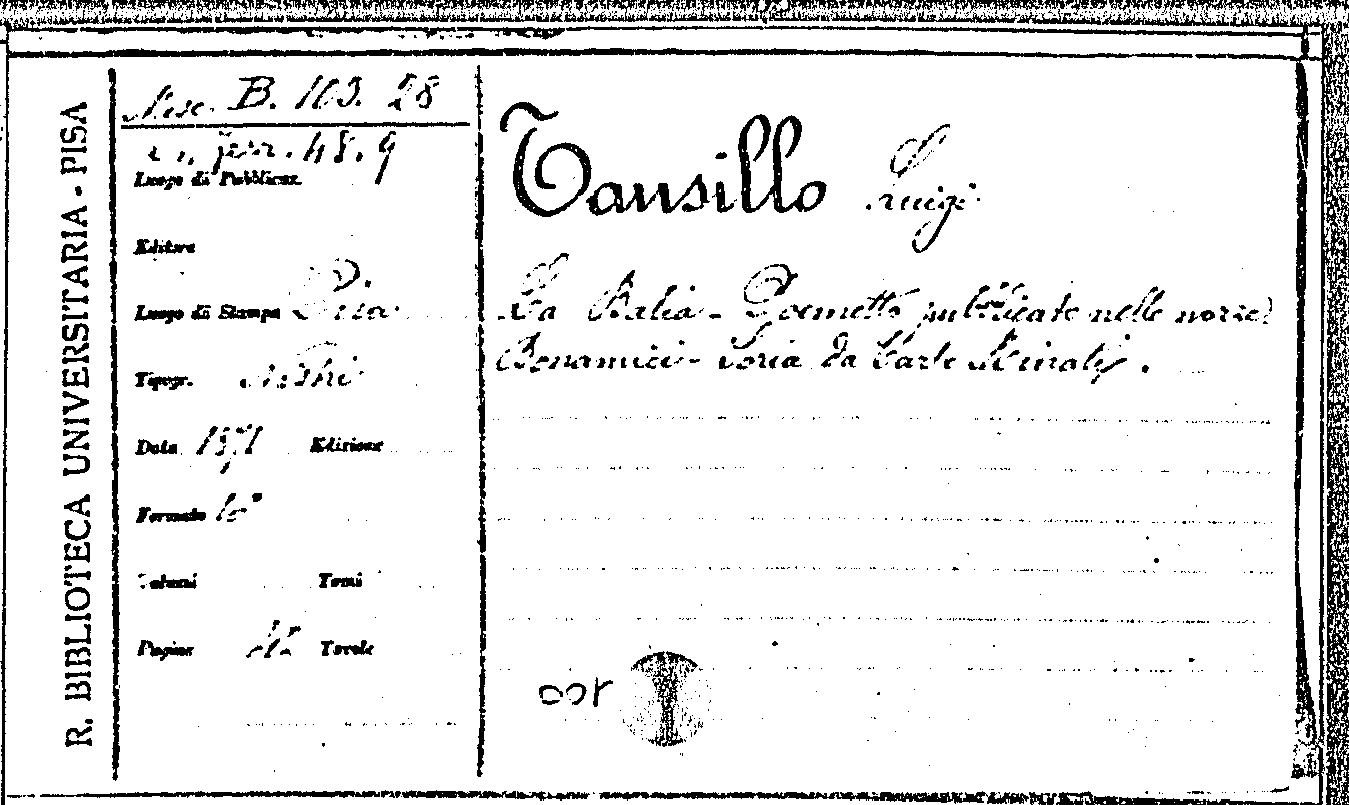 R. BIBLIOTECA UNIVERSITARIA - PISA
Misc. B. 103. 28
48.9
Luogo di Pubblicaz.
Editore
Luogo di Stampa Pisa
Tipogr. Nistri
Data 1871 Edizione
Formato
Volumi Tomi
Pagine Tavole
Tansillo Luigi
La Balia - Poemetto pubblicato nelle nozze
Bonamici - Soria da Carlo Minati.